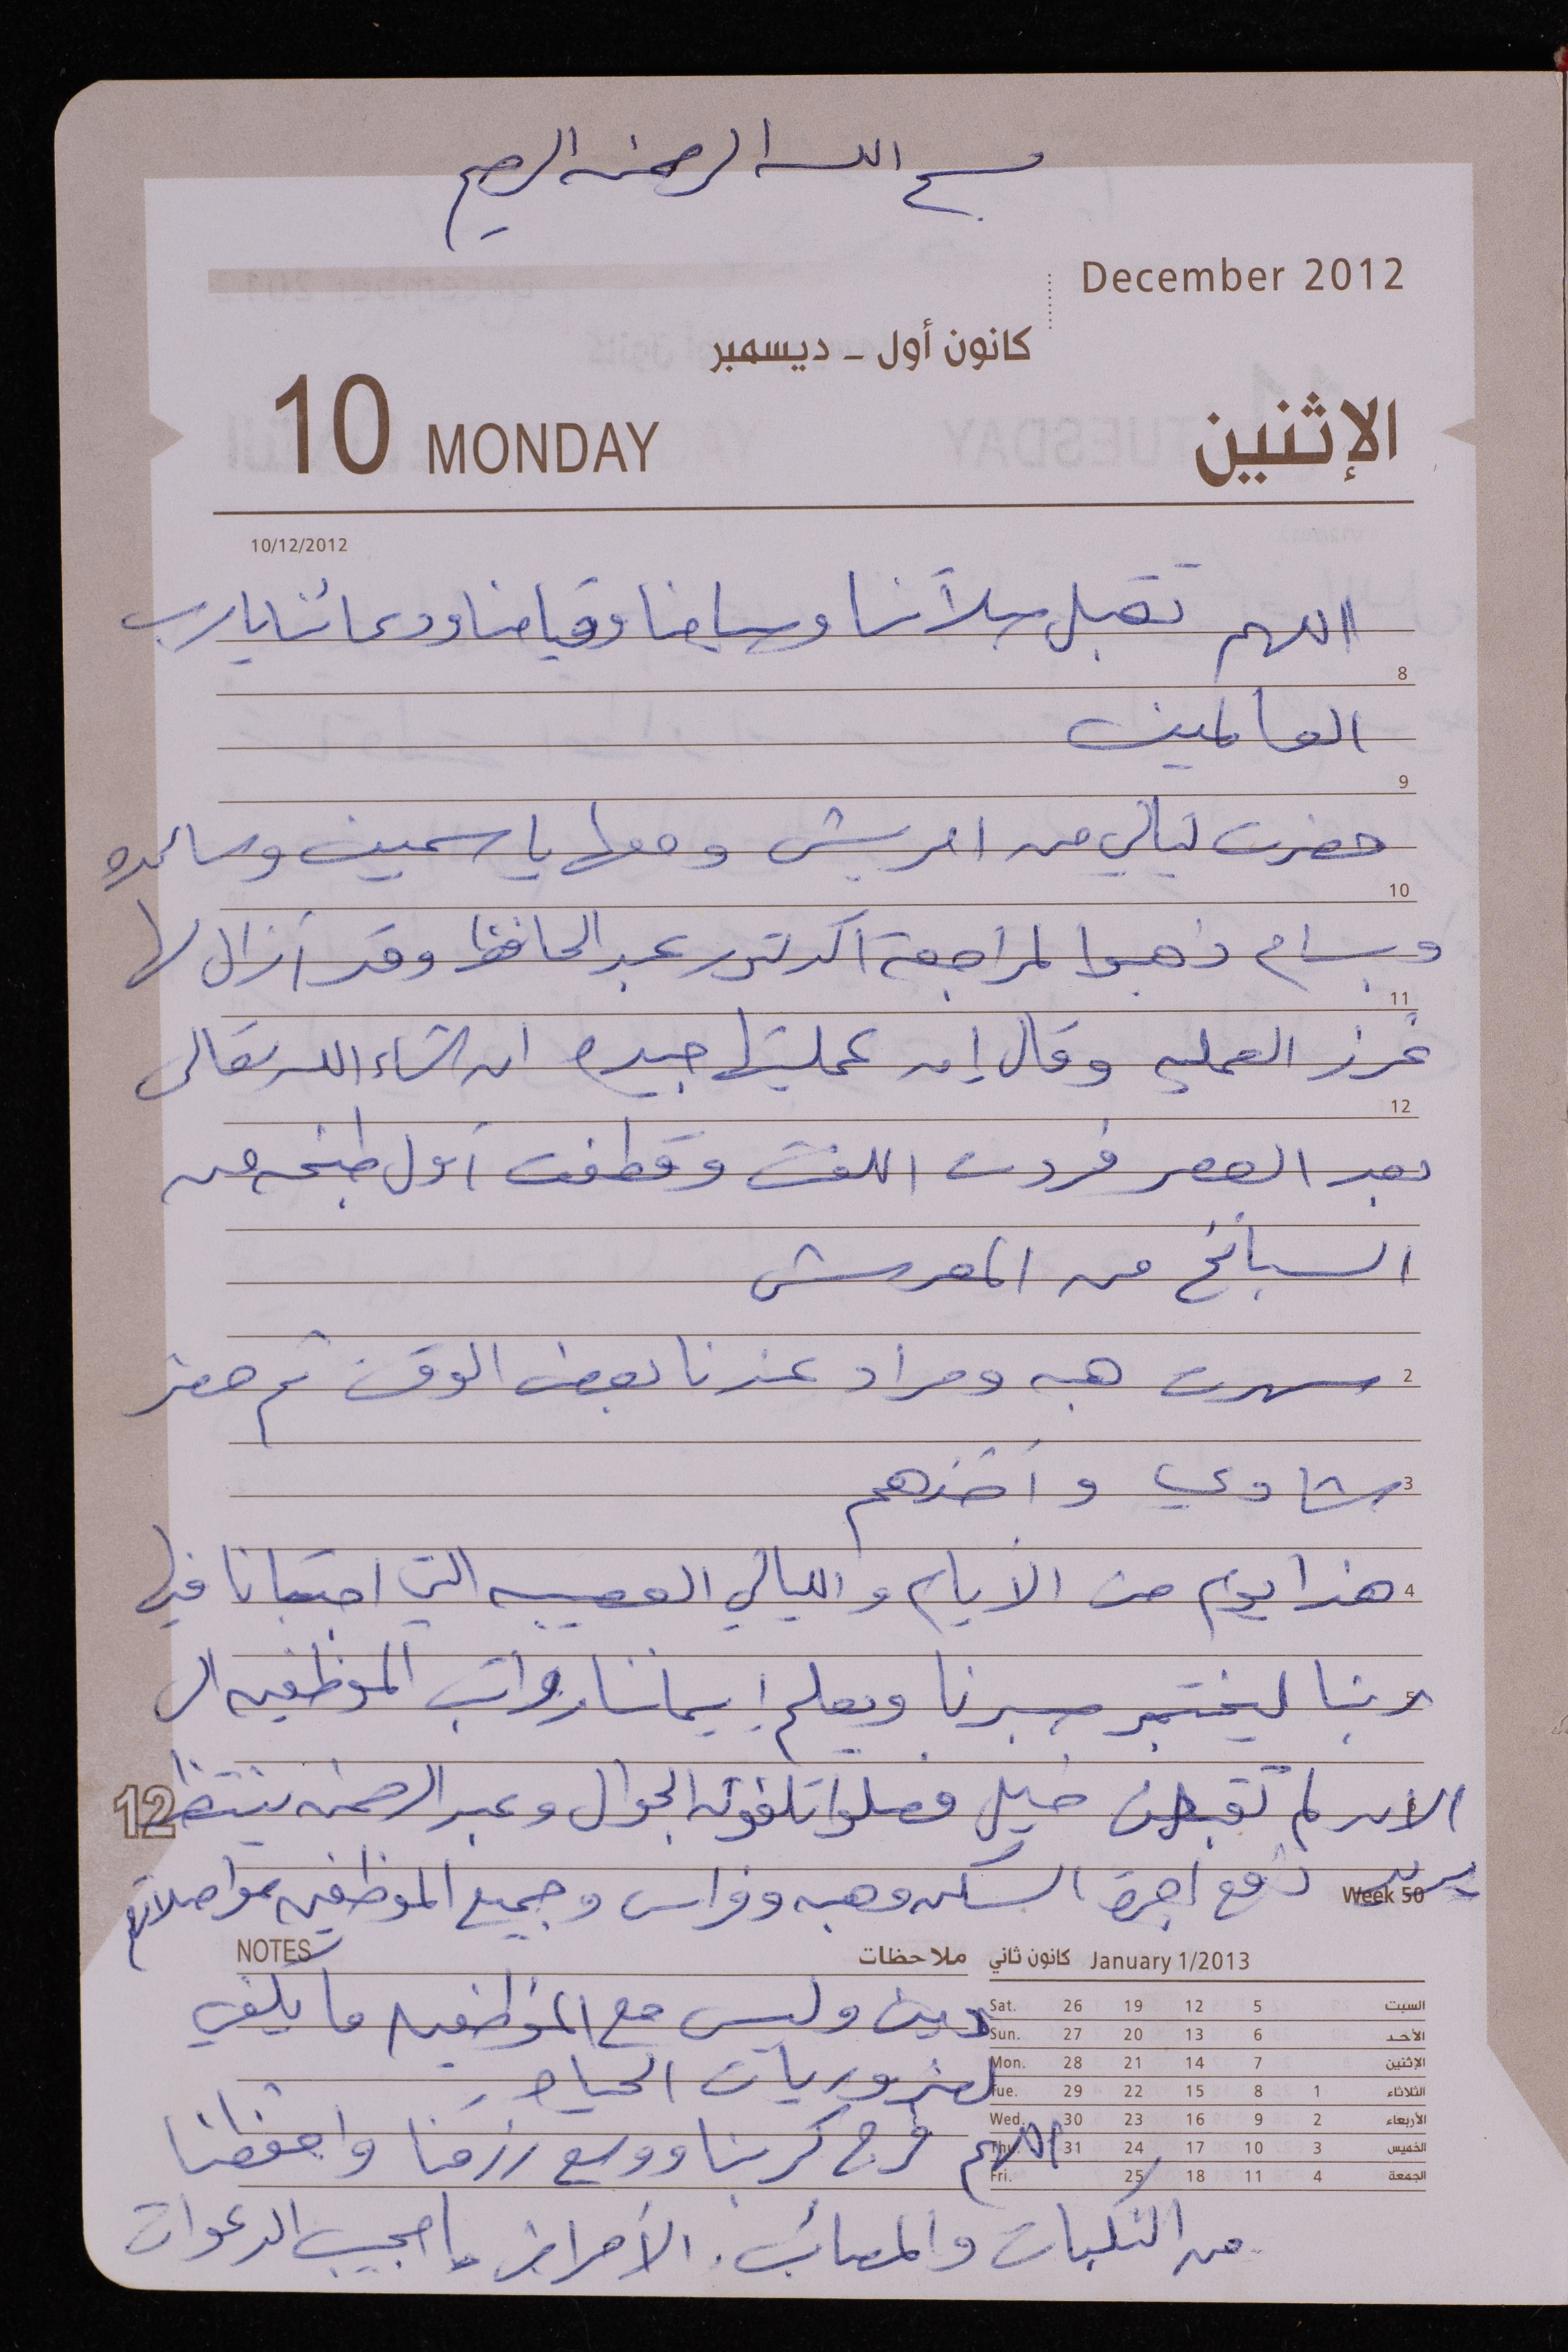 بسم الله الرحمن الرحيم
December 2012
كانون أول - ديسمبر
10 MONDAY الإثنين
10/12/2012
اللهم تقبل صلاتنا وصيامنا وقيامنا ودعائنا يا رب
8
العالمين
9
حضرت ليالي من امريش ومعها ياسمين وسائده
10
وبسام ذهبوا لمراجعة الدكتور عبد الحافظ وقد أزال لها
11
غرز العمليه وقال إن عمليتها جيده ان شاء الله تعالى
12
بعد العصر فردت اللفت وقطفت أول طبخه من
السبانخ من المعرش
2 سهرت هبه ومراد عندنا بعض الوقت ثم حضر
3 شادي وأخذهم
4 هذا يوم من الأيام والليالي العصيبه التي اجتبانا فيها
5 ربنا ليختبر صبرنا ويعلم إيماننا رواتب الموظفين ال
الان لم تقبض خيل فصلوا تلفونه الجوال وعبد الرحمن ينتظر
12
يريد دفع اجرة السكن وهبه وفراس وجميع الموظفين مواصلاتهم
Week 50
NOTES ملاحظات
دين وليس مع الموظفين ما يكفي
لضروريات الحياه
اللهم فرج كربنا ووسع رزقنا واحفظنا
من النكبات والمصائب. الأمراض يا مجيب الدعوات
كانون ثاني January 1/2013
Sat. 26 19 12 5 السبت
Sun. 27 20 13 6 الأحد
Mon. 28 21 14 7 الإثنين
Tue. 29 22 15 8 1 الثلاثاء
Wed. 30 23 16 9 2 الأربعاء
Thu. 31 24 17 10 3 الخميس
Fri. 25 18 11 4 الجمعة